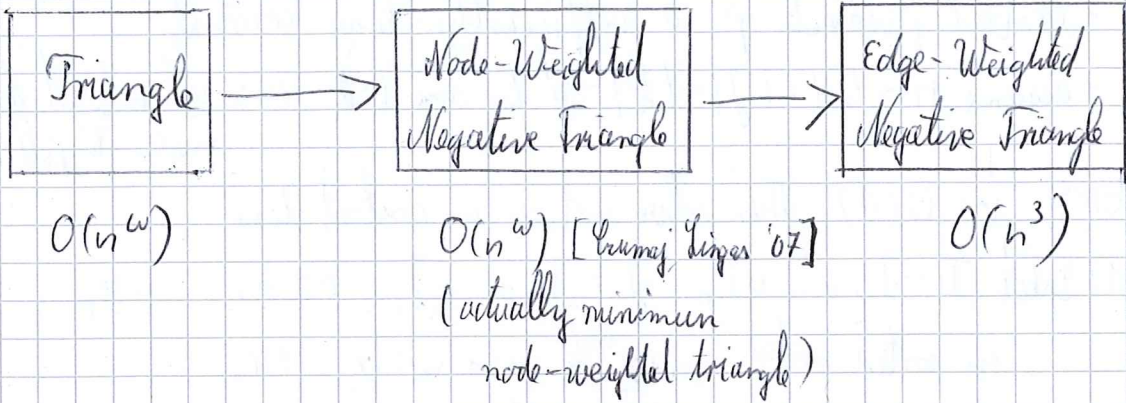 Triangle
Node-Weighted
Negative Triangle
Edge-Weighted
Negative Triangle
O(n^ω)
O(n^ω) [Czumaj, Lingas '07]
(actually minimum
node-weighted triangle)
O(n^3)